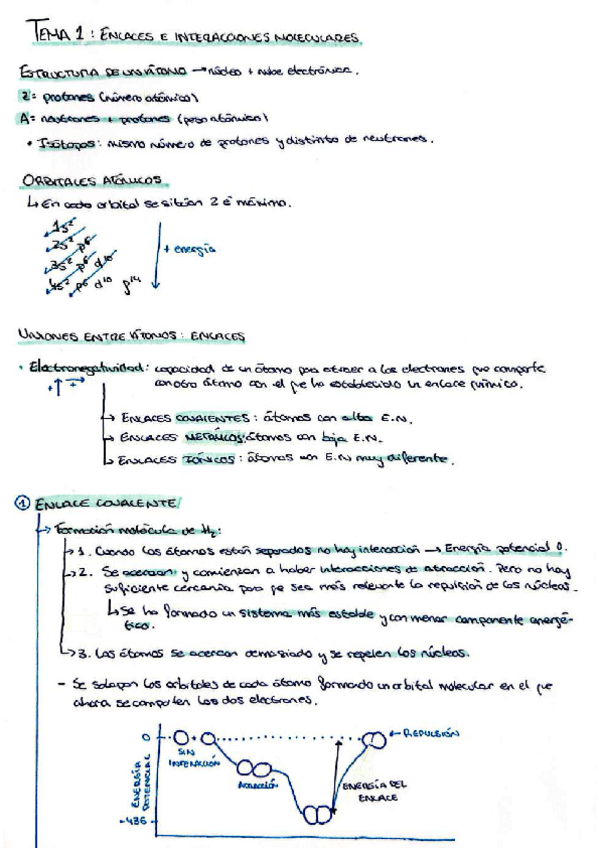 TEMA 1: ENLACES E INTERACCIONES MOLECULARES.
ESTRUCTURA DE UN ÁTOMO → núcleo + nube electrónica.
Z = protones (número atómico)
A = neutrones + protones (peso atómico)
• Isótopos: mismo número de protones y distinto de neutrones.
ORBITALES ATÓMICOS.
↳ En cada orbital se sitúan 2 e⁻ máximo.
1s²
2s² p⁶
3s² p⁶ d¹⁰
4s² p⁶ d¹⁰ f¹⁴
+ energía
UNIONES ENTRE ÁTOMOS: ENLACES
• Electronegatividad: capacidad de un átomo para atraer a los electrones que comparte
con otro átomo con el que ha establecido un enlace químico.
+↑ +→
→ ENLACES COVALENTES: átomos con alta E.N.
→ ENLACES METÁLICOS: átomos con baja E.N.
↳ ENLACES IÓNICOS: átomos con E.N muy diferente.
① ENLACE COVALENTE/
→ Formación molécula de H₂:
→ 1. Cuando los átomos están separados no hay interacción → Energía potencial 0.
→ 2. Se acercan y comienzan a haber interacciones de atracción. Pero no hay
suficiente cercanía para que sea más relevante la repulsión de los núcleos.
↳ Se ha formado un sistema más estable y con menor componente energé-
tico.
→ 3. Los átomos se acercan demasiado y se repelen los núcleos.
- Se solapan los orbitales de cada átomo formando un orbital molecular en el que
ahora se comparten los dos electrones.
0
+
← REPULSIÓN
SIN
INTERACCIÓN
ATRACCIÓN
ENERGÍA DEL
ENLACE
ENERGÍA
POTENCIAL
-436